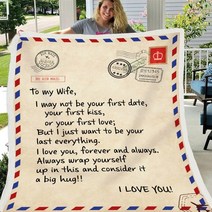 To my Wife,
I may not be your first date,
your first kiss,
or your first love;
But I just want to be your
last everything.
I love you, forever and always.
Always wrap yourself
up in this and consider it
a big hug!!
I LOVE YOU!